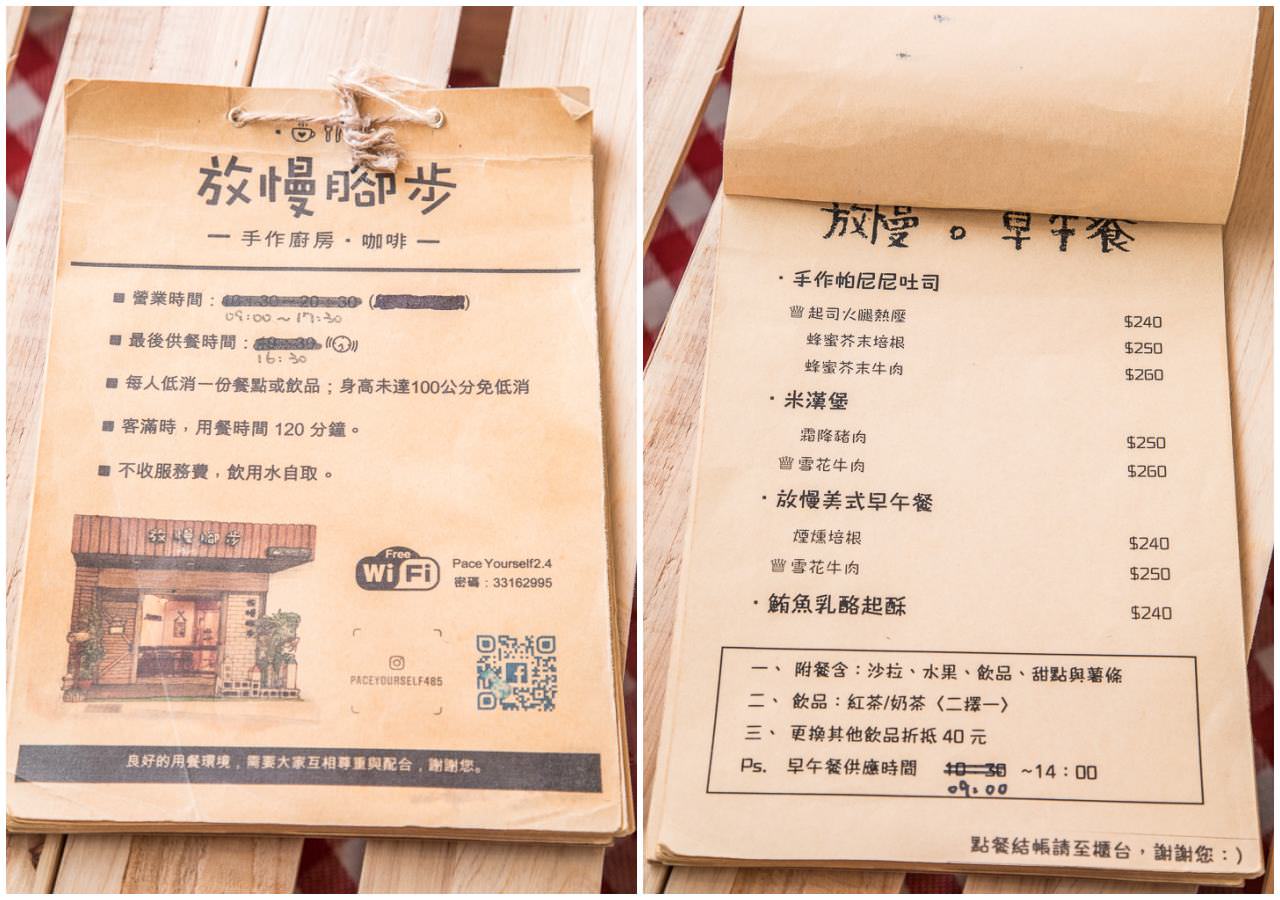 放慢腳步
手作廚房・咖啡
■ 營業時間：10：30－20：30 (
09:00～17:30
■ 最後供餐時間：
16:30
■ 每人低消一份餐點或飲品；身高未達100公分免低消
■ 客滿時，用餐時間 120 分鐘。
■ 不收服務費，飲用水自取。
放慢腳步
Free
WiFi
Pace Yourself2.4
密碼：33162995
PACEYOURSELF485
良好的用餐環境，需要大家互相尊重與配合，謝謝您。
放慢。早午餐
・手作帕尼尼吐司
起司火腿熱壓 $240
蜂蜜芥末培根 $250
蜂蜜芥末牛肉 $260
・米漢堡
霜降豬肉 $250
雪花牛肉 $260
・放慢美式早午餐
煙燻培根 $240
雪花牛肉 $250
・鮪魚乳酪起酥 $240
一、 附餐含：沙拉、水果、飲品、甜點與薯條
二、 飲品：紅茶/奶茶〈二擇一〉
三、 更換其他飲品折抵 40 元
Ps. 早午餐供應時間 10：30 ~14：00
09:00
點餐結帳請至櫃台，謝謝您：)